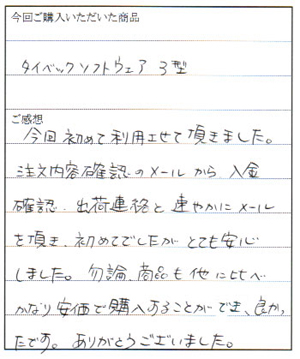 今回ご購入いただいた商品
タイベックソフトウェア 3型
ご感想
今回初めて利用させて頂きました。
注文内容確認のメールから 入金
確認、出荷連絡と速やかにメール
を頂き、初めてでしたがとても安心
しました。勿論、商品も他に比べ
かなり安価で購入することができ、良かっ
たです。ありがとうございました。